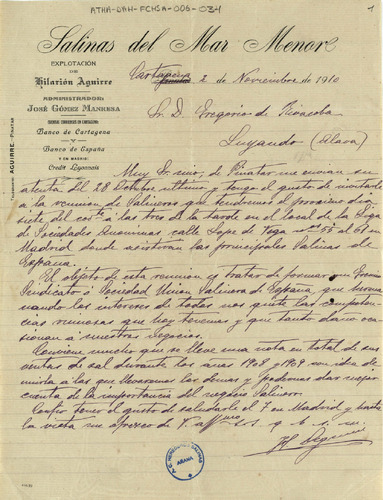 ATHA-DAH-FCHSA-006-034
1
Salinas del Mar Menor
EXPLOTACIÓN
DE
Hilarión Aguirre
ADMINISTRADOR:
JOSÉ GÓMEZ MANRESA
CUENTAS CORRIENTES EN CARTAGENA:
Banco de Cartagena
Y
Banco de España
Y EN MADRID:
Credit Lyonnais
Cartagena 2 de Noviembre de 1910
Sr. D. Gregorio de
Luyando (Alava)
Muy Sr. mio; de Pinatar me envian su
atenta del 28 Octubre ultimo y tengo el gusto de invitarle
a la reunion de Salineros que tendremos el proximo dia
siete del corte a las tres de la tarde en el local de la Liga
de Sociedades Anonimas calle Lope de Vega nos 55 al 61 en
Madrid donde asistiran las principales Salinas de
España.
El objeto de esta reunion es tratar de formar un Gremio
Sindicato ó Sociedad Union Salinera de España, que
los intereses de todos nos quite las competen-
cias ruinosas que hoy tenemos y que tanto daño oca-
sionan a nuestros negocios.
Conviene mucho que se lleve una nota en total de sus
ventas de sal durante los años 1908 y 1909 con idea de
unirla a las que llevaremos los demas y podernos dar mejor
cuenta de la importancia del negocio Salinero.
Espero tener el gusto de saludarle el 7 en Madrid y hasta
la vista me ofrezco de V. affmo s.s. q. b. s. m.
H Aguirre
ARABA